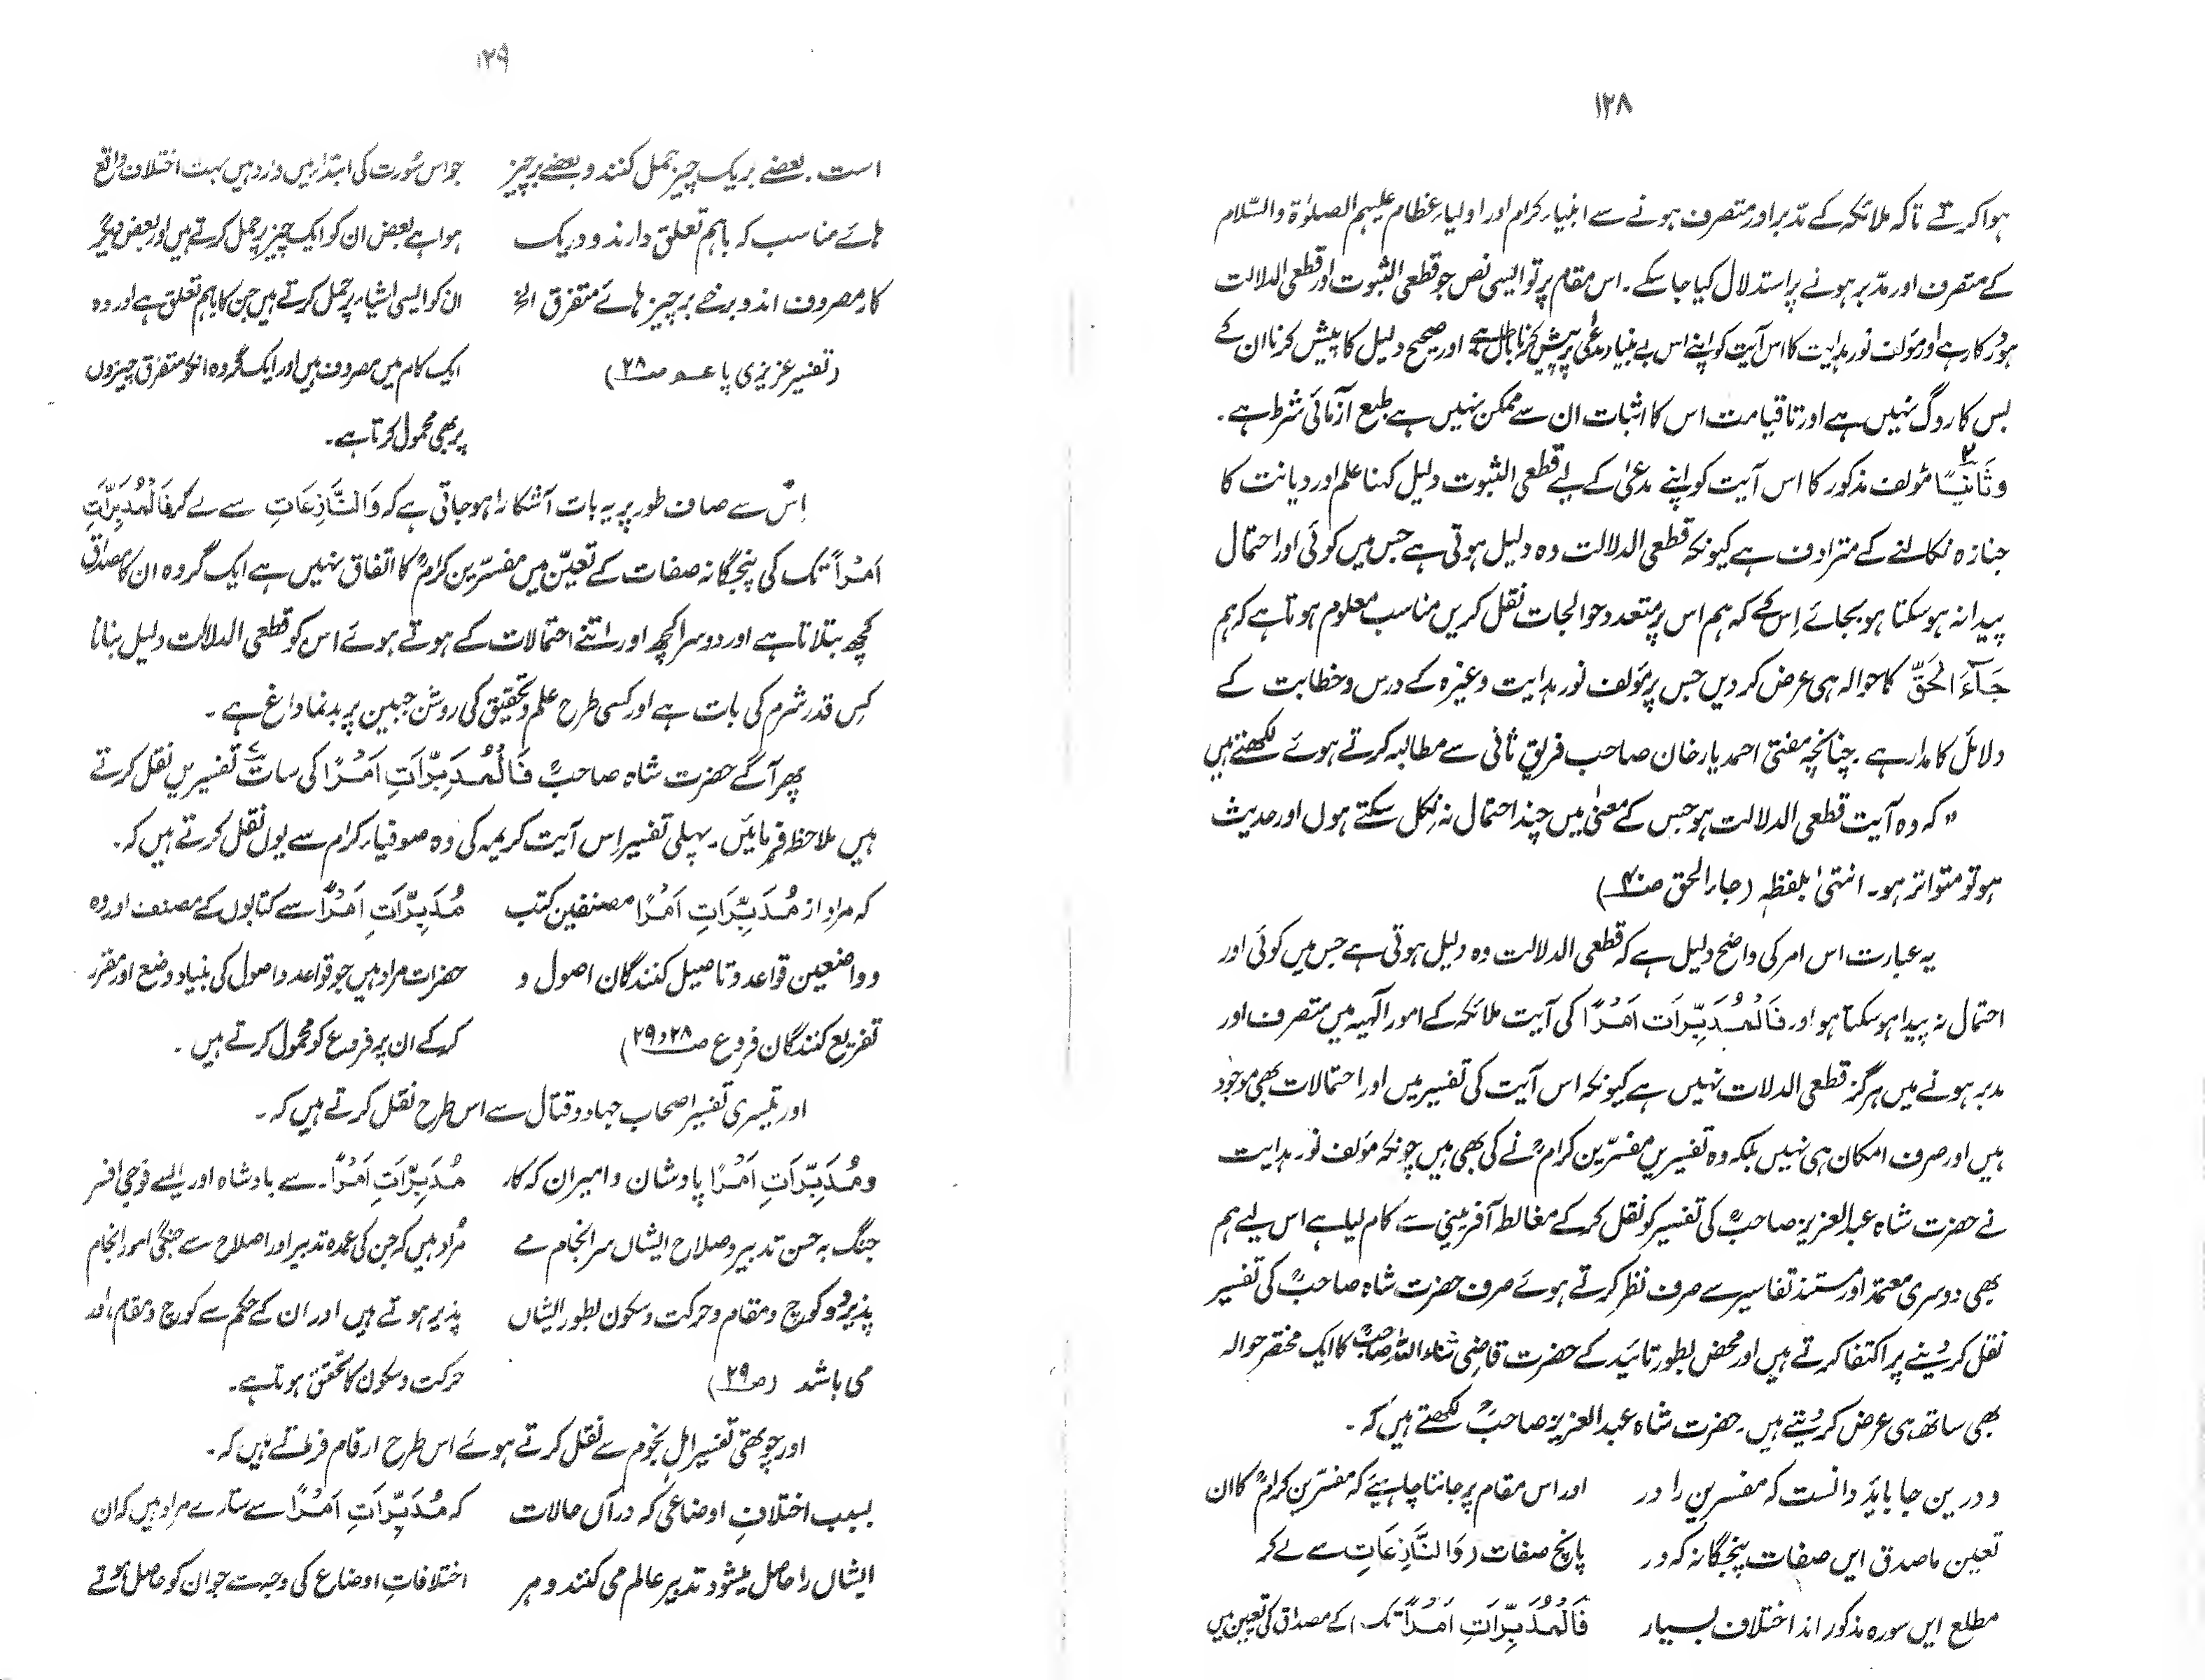 ۱۲۸
ہوا کرتے تاکہ ملائکہ کے مدبر اور متصرف ہونے سے انبیاء کرام اور اولیاء عظام علیہم الصلوٰۃ والسّلام
کے متصرف اور مدّبر ہونے پر استدلال کیا جا سکے۔ اس مقام پر تو ایسی نص جو قطعی الثبوت اور قطعی الدلالت
ہو درکار ہے اور مؤلف نور ہدایت کا اس آیت کو اپنے اس بے بنیاد مدعٰی پر پیش کرنا باطل ہے اور صحیح دلیل کا پیش کرنا ان کے
بس کا روگ نہیں ہے اور تا قیامت اس کا اثبات ان سے ممکن نہیں ہے طبع آزمائی شرط ہے۔
وثَانِیًا مؤلف مذکور کا اس آیت کو اپنے مدعٰی کے لیے قطعی الثبوت دلیل کہنا علم اور دیانت کا
جنازہ نکالنے کے مترادف ہے کیونکہ قطعی الدلالت وہ دلیل ہوتی ہے جس میں کوئی اور احتمال
پیدا نہ ہو سکتا ہو بجائے اِس کے کہ ہم اس پر متعدد حوالجات نقل کریں مناسب معلوم ہوتا ہے کہ ہم
جَآءَ الْحَقّ کا حوالہ ہی عرض کر دیں جس پر مؤلف نور ہدایت وغیرہ کے درس و خطابت کے
دلائل کا مدار ہے۔ چنانچہ مفتی احمد یار خان صاحب فریق ثانی سے مطالبہ کرتے ہوئے لکھتے ہیں
"کہ وہ آیت قطعی الدلالت ہو جس کے معنیٰ میں چند احتمال نہ نکل سکتے ہوں اور حدیث
ہو تو متواتر ہو۔ انتہیٰ بلفظہٖ (جاء الحق صـ۴۰)
یہ عبارت اس امر کی واضح دلیل ہے کہ قطعی الدلالت وہ دلیل ہوتی ہے جس میں کوئی اور
احتمال نہ پیدا ہو سکتا ہو اور فَالْمُدَبِّرَات اَمْرًا کی آیت ملائکہ کے امور الٰہیہ میں متصرف اور
مدبر ہونے میں ہرگز قطعی الدلات نہیں ہے کیونکہ اس آیت کی تفسیر میں اور احتمالات بھی موجود
ہیں اور صرف امکان ہی نہیں بلکہ وہ تفسیریں مفسّرین کرامؒ نے کی بھی ہیں چونکہ مؤلف نور ہدایت
نے حضرت شاہ عبد العزیز صاحبؒ کی تفسیر کو نقل کر کے مغالطہ آفرینی سے کام لیا ہے اس لیے ہم
بھی دوسری معتمد اور مستند تفاسیر سے صرف نظر کرتے ہوئے صرف حضرت شاہ صاحبؒ کی تفسیر
نقل کر دینے پر اکتفا کرتے ہیں اور محض بطور تائید کے حضرت قاضی ثناء اللہ صاحبؒ کا ایک مختصر حوالہ
بھی ساتھ ہی عرض کر دیتے ہیں۔ حضرت شاہ عبد العزیز صاحبؒ لکھتے ہیں کہ۔
و درین جا باید دانست کہ مفسرین را در
تعیین ماصدق ایں صفات پنجگانہ کہ در
مطلع ایں سورہ مذکور اند اختلاف بسیار
اور اس مقام پر جاننا چاہیئے کہ مفسّرین کرامؒ کا ان
پانچ صفات (وَالنَّازِعَاتِ سے لے کر
فَالْمُدَبِّرَاتِ اَمْرًا تک) کے مصداق کی تعیین میں
۱۲۹
است۔ بعضے بریک چیز حمل کنند و بعضے بر چیز
ہائے مناسب کہ باہم تعلق دارند و دریک
کار مصروف اند و برخے بر چیز ہائے متفرق الخ
(تفسیر عزیزی پا عـم صـ۲۸)
جو اس سُورت کی ابتداء میں وارد ہیں بہت اختلاف واقع
ہوا ہے بعض ان کو ایک چیز پر حمل کرتے ہیں اور بعض دیگر
ان کو ایسی اشیاء پر حمل کرتے ہیں جن کا باہم تعلق ہے اور وہ
ایک کام میں مصروف ہیں اور ایک گروہ انکو متفرق چیزوں
پر بھی محمول کرتا ہے۔
اِس سے صاف طور پر یہ بات آشکارا ہو جاتی ہے کہ وَالنَّازِعَاتِ سے لے کر فَالْمُدَبِّرَاتِ
اَمْرًا تک کی پنجگانہ صفات کے تعیّن میں مفسّرین کرامؒ کا اتفاق نہیں ہے ایک گروہ ان کا مصداق
کچھ بتلاتا ہے اور دوسرا کچھ اور اتنے احتمالات کے ہوتے ہوئے اس کو قطعی الدلالت دلیل بنانا
کِس قدر شرم کی بات ہے اور کسی طرح علم و تحقیق کی روشن جبین پر بدنما داغ ہے۔
پھر آگے حضرت شاہ صاحبؒ فَالْمُدَبِّرَاتِ اَمْرًا کی سات تفسیریں نقل کرتے
ہیں ملاحظہ فرمائیں۔ پہلی تفسیر اِس آیت کریمہ کی وہ صوفیاء کرام سے یوں نقل کرتے ہیں کہ۔
کہ مراد از مُدَبِّرَاتِ اَمْرًا مصنفین کتب
و واضعین قواعد و تاصیل کنندگان اصول و
تفریع کنندگان فروع صـ۲۸ و ۲۹)
مُدَبِّرَاتِ اَمْرًا سے کتابوں کے مصنف اور وہ
حضرات مراد ہیں جو قواعد و اصول کی بنیاد وضع اور مقرر
کر کے ان پر فروع کو محمول کرتے ہیں۔
اور تیسری تفسیر اصحاب جہاد و قتال سے اس طرح نقل کرتے ہیں کہ۔
و مُدَبِّرَاتِ اَمْرًا پادشان و امیران کہ کار
جنگ بہ حسن تدبیر و صلاح ایشاں سرانجام مے
پذیرد و کوچ و مقام و حرکت و سکون بطور ایشاں
می باشد (صـ۲۹)
مُدَبِّرَاتِ اَمْرًا۔ سے بادشاہ اور ایسے فوجی افسر
مُراد ہیں کہ جن کی عمدہ تدبیر اور اصلاح سے جنگی امور انجام
پذیر ہوتے ہیں اور ان کے حکم سے کوچ و مقام اور
حرکت و سکون کا تحقق ہوتا ہے۔
اور چوتھی تفسیر اہل نجوم سے نقل کرتے ہوئے اس طرح ارقام فرماتے ہیں کہ۔
بسبب اختلافِ اوضاعی کہ درآں حالات
ایشاں را حاصل میشود تدبیر عالم می کنند و ہر
کہ مُدَبِّرَاتِ اَمْرًا سے ستارے مراد ہیں کہ ان
اختلافاتِ اوضاع کی وجہ سے جو ان کو حاصل ہوتے